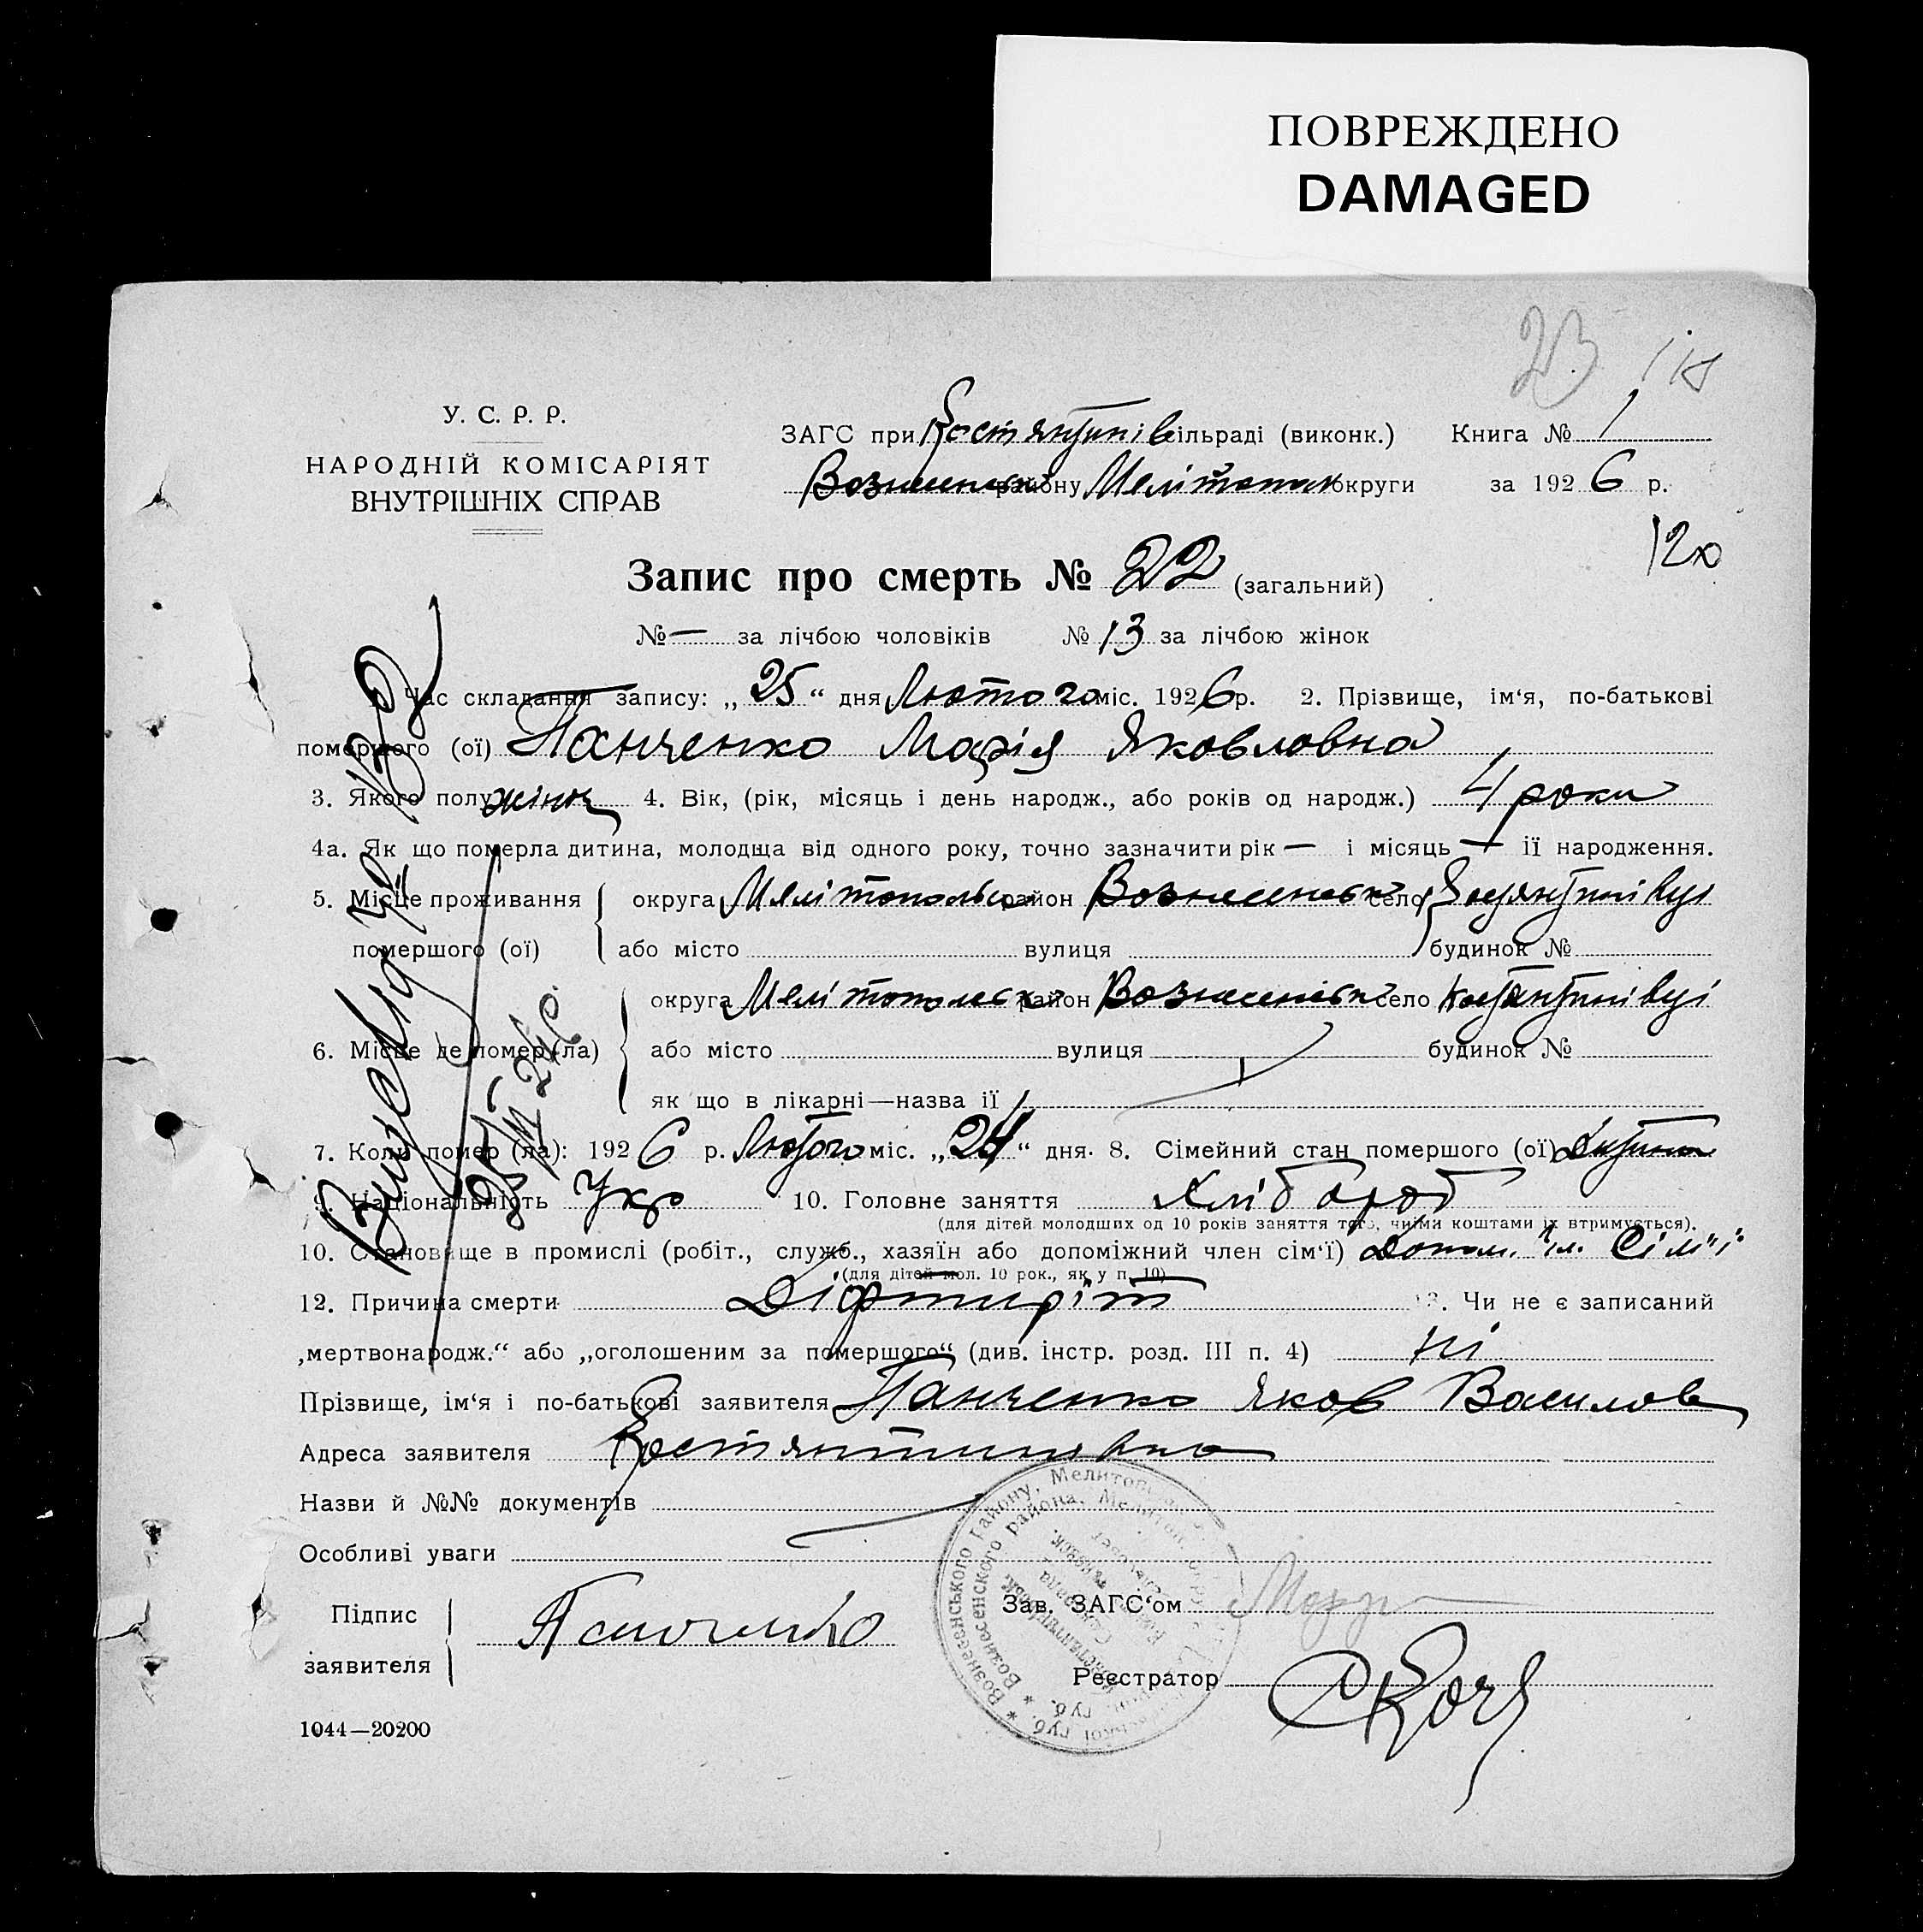 ПОВРЕЖДЕНО
DAMAGED
23
У. С. Р. Р.
НАРОДНІЙ КОМІСАРІЯТ
ВНУТРІШНІХ СПРАВ
ЗАГС при Костянтинів сільраді (виконк.) Книга № 1
Вознесенськ району Мелітопол округи за 1926 р.
120
Запис про смерть № 22 (загальний)
№ — за лічбою чоловіків № 13 за лічбою жінок
Час складання запису: „25“ дня Лютого міс. 1926 р. 2. Прізвище, ім‘я, по-батькові
померщого (ої) Панченко Марія Яковловна
3. Якого полу жіноч 4. Вік, (рік, місяць і день народж., або років од народж.) 4 роки
4а. Як що померла дитина, молодща від одного року, точно зазначити рік — і місяць — ії народження.
5. Місце проживання округа Мелітопольськ район Вознесенськ село Костянтинівці
померщого (ої) або місто вулиця будинок №
округа Мелітопольськ район Вознесенськ село Костянтинівці
6. Місце де помер (ла) або місто вулиця будинок №
як що в лікарні—назва ії
7. Коли помер (ла): 1926 р. Лютого міс. „24“ дня. 8. Сімейний стан померщого (ої) Дитина
9. Національність Укр 10. Головне заняття Хлібороб
(для дітей молодших од 10 років заняття того, чиїми коштами їх втримується).
10. Становаще в промислі (робіт., служб., хазяїн або допоміжний член сім‘ї) Допом. чл. Сімї
(для дітей мол. 10 рок., як у п. 10)
12. Причина смерти Діфтиріт 13. Чи не є записаний
„мертвонародж.“ або „оголошеним за померщого“ (див. інстр. розд. III п. 4) ні
Прізвище, ім‘я і по-батькові заявителя Панченко Яков Василов
Адреса заявителя Костянтиновка
Назви й №№ документів
Особливі уваги
Підпис
заявителя Панченко
Зав. ЗАГС‘ом
Реєстратор
* Вознесенського Району, Мелитоп
* Вознесенского района, Мелитоп.
1044—20200